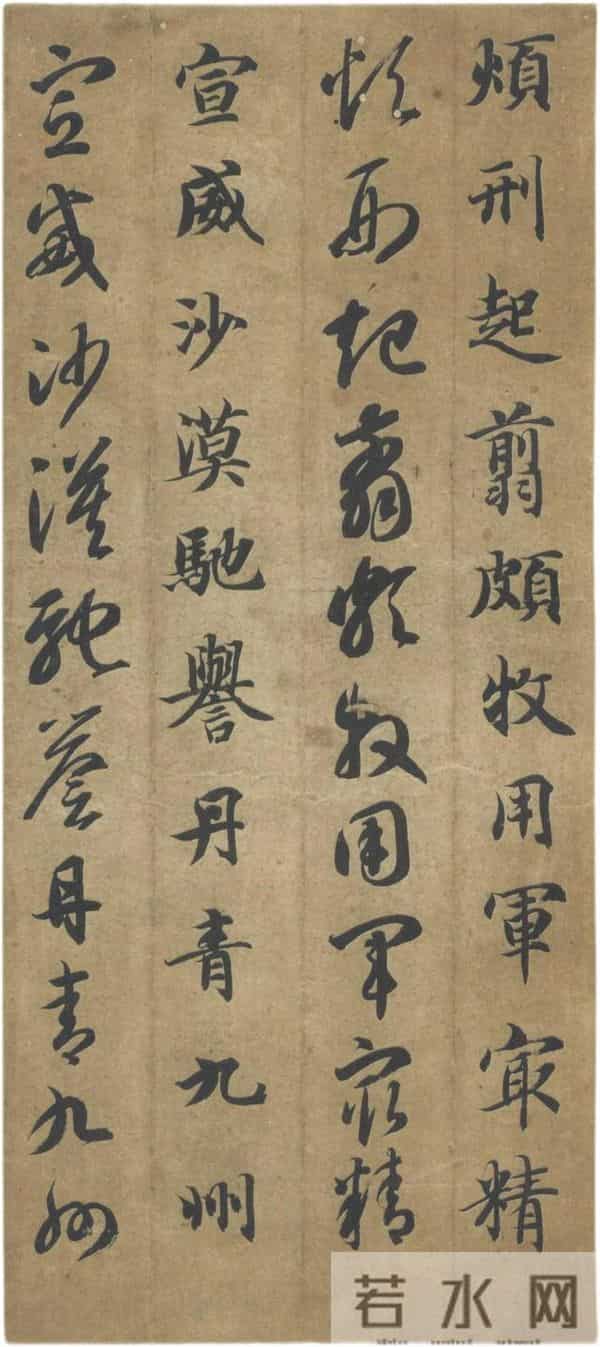 煩刑起翦頗牧用軍㝡精
煩刑起翦頗牧用軍㝡精
宣威沙漠馳譽丹青九州
宣威沙漠馳譽丹青九州
若水网